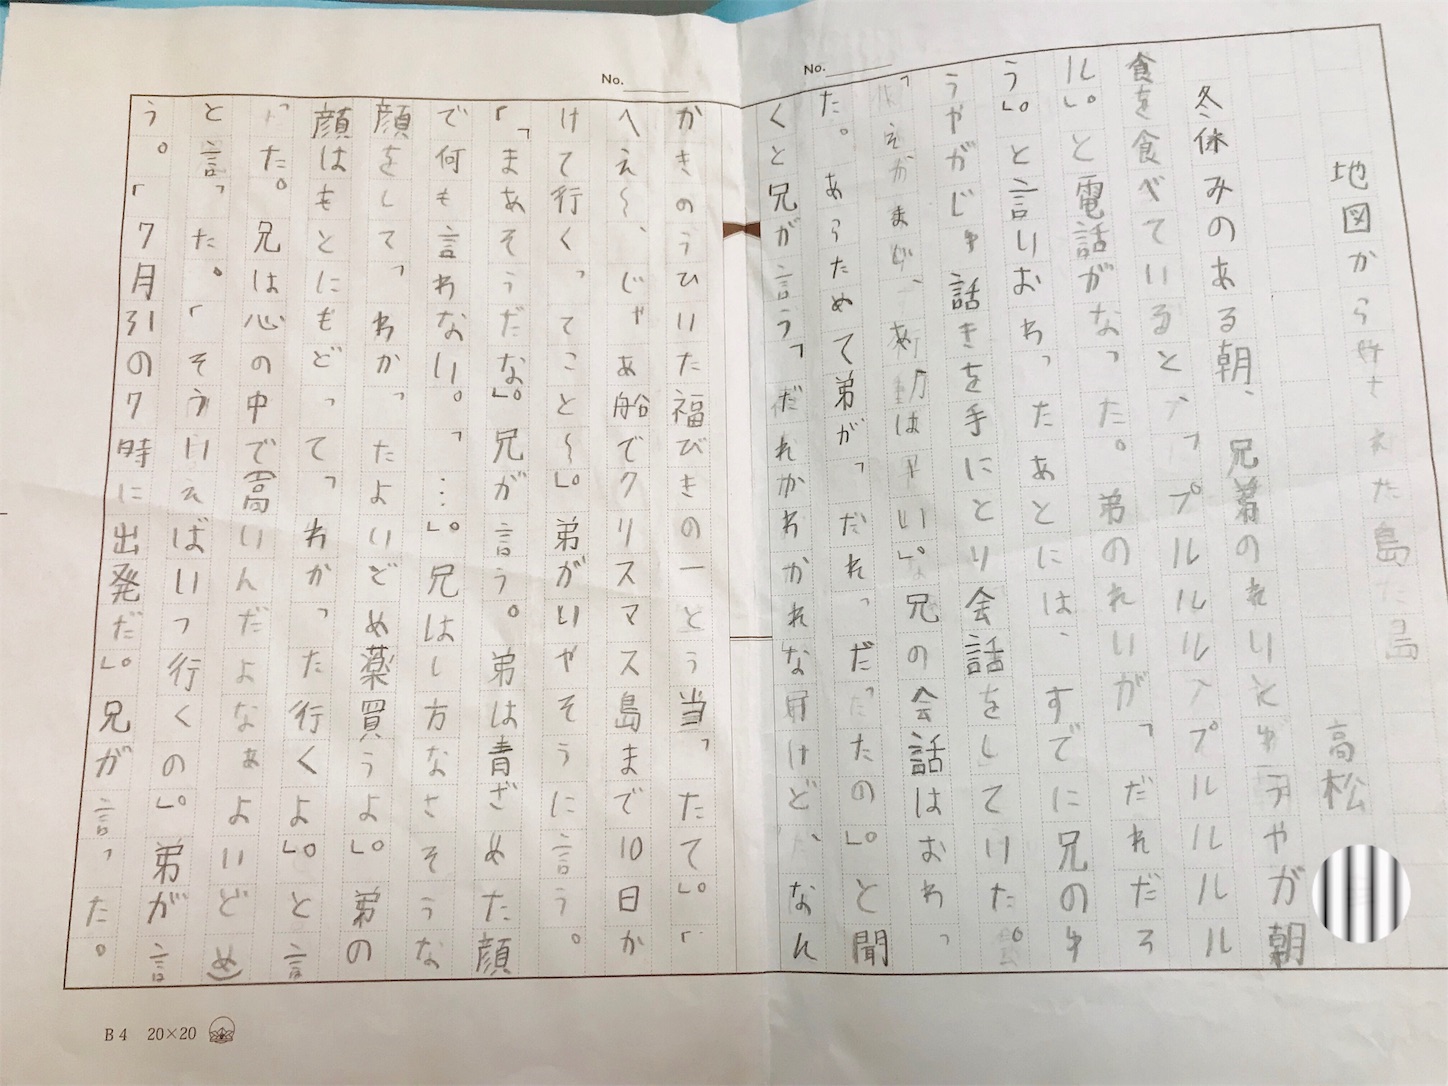 地図から消された島
高松
冬休みのある朝、兄弟のれいとゆうやが朝
食を食べていると、「プルルルルプルルルル
ル」。と電話がなった。弟のれいが「だれだろ
う」。と言いおわったあとには、すでに兄のゆ
うやがじゅ話きを手にとり会話をしていた。
兄の会話はおわっ
た。あらためて弟が「だれっだったの」。と聞
くと兄が言う「だれかわかれないけど、なん
かきのうひいた福びきの一とう当ったて」。「
へえ〜、じゃあ船でクリスマス島まで10日か
けて行くってこと〜」。弟がいやそうに言う。
「「まあそうだな」。兄が言う。弟は青ざめた顔
で何も言わない。「…」。兄はし方なさそうな
顔をして「わかったよいどめ薬買うよ」。弟の
顔はもとにもどって「わかった行くよ」。と言
った。兄は心の中で高いんだよなぁよいどめ
と言った。「そういえばいつ行くの」。弟が言
う。「7月31の7時に出発だ」。兄が言った。
No.
No.
B4 20×20